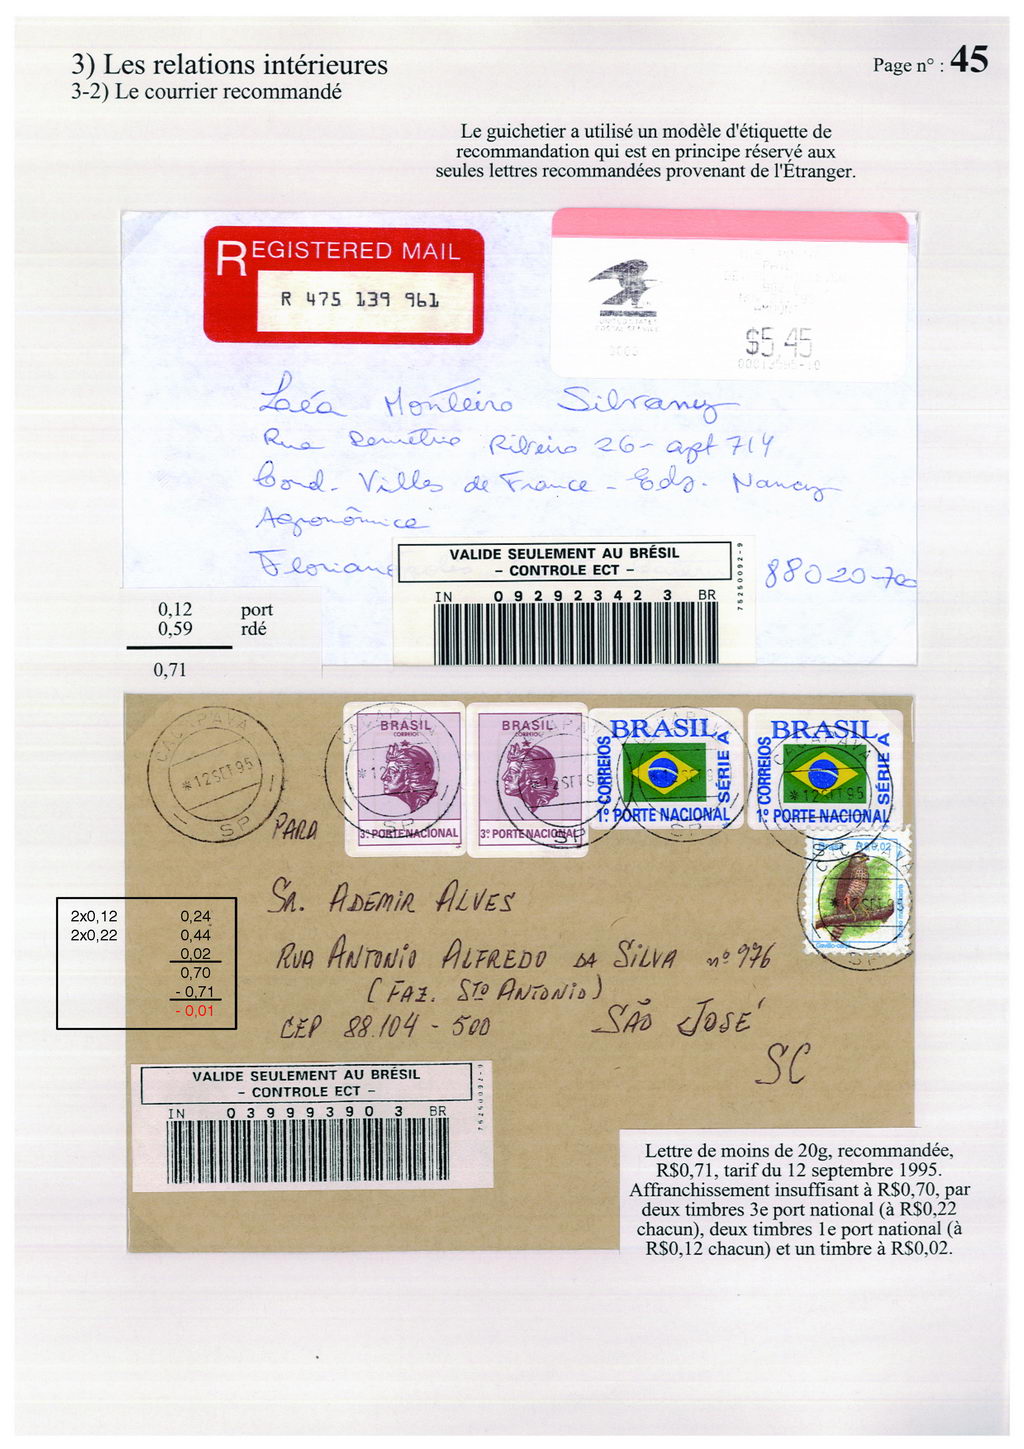 3) Les relations intérieures
Page n° : 45
3-2) Le courrier recommandé
Le guichetier a utilisé un modèle d'étiquette de
recommandation qui est en principe réservé aux
seules lettres recommandées provenant de l'Étranger.
REGISTERED MAIL
R 475 139 961
$5.45
Laéa Monteiro Silvany
Rua Demétrio Ribeiro 26 - apt 714
Cond. Villes de France - Edf. Nancy
Agronômica
Florian
88020-700
VALIDE SEULEMENT AU BRÉSIL
- CONTROLE ECT -
IN 09292342 3 BR
75250092-9
0,12 port
0,59 rdé
0,71
CAÇAPAVA
*12 SET 95
SP
BRASIL
CORREIO
3º PORTE NACIONAL
BRASIL
CORREIO
3º PORTE NACIONAL
BRASIL
CORREIOS
SÉRIE A
1º PORTE NACIONAL
BRASIL
CORREIOS
SÉRIE A
1º PORTE NACIONAL
Brasil R$ 0,02
PARA
SR. ADEMIR ALVES
RUA ANTONIO ALFREDO DA SILVA nº 976
(FAZ. STO ANTONIO)
CEP 88.104-500 SÃO JOSÉ
SC
2x0,12 0,24
2x0,22 0,44
0,02
0,70
- 0,71
- 0,01
VALIDE SEULEMENT AU BRÉSIL
- CONTROLE ECT -
IN 03999390 3 BR
75250092-9
Lettre de moins de 20g, recommandée,
R$0,71, tarif du 12 septembre 1995.
Affranchissement insuffisant à R$0,70, par
deux timbres 3e port national (à R$0,22
chacun), deux timbres 1e port national (à
R$0,12 chacun) et un timbre à R$0,02.